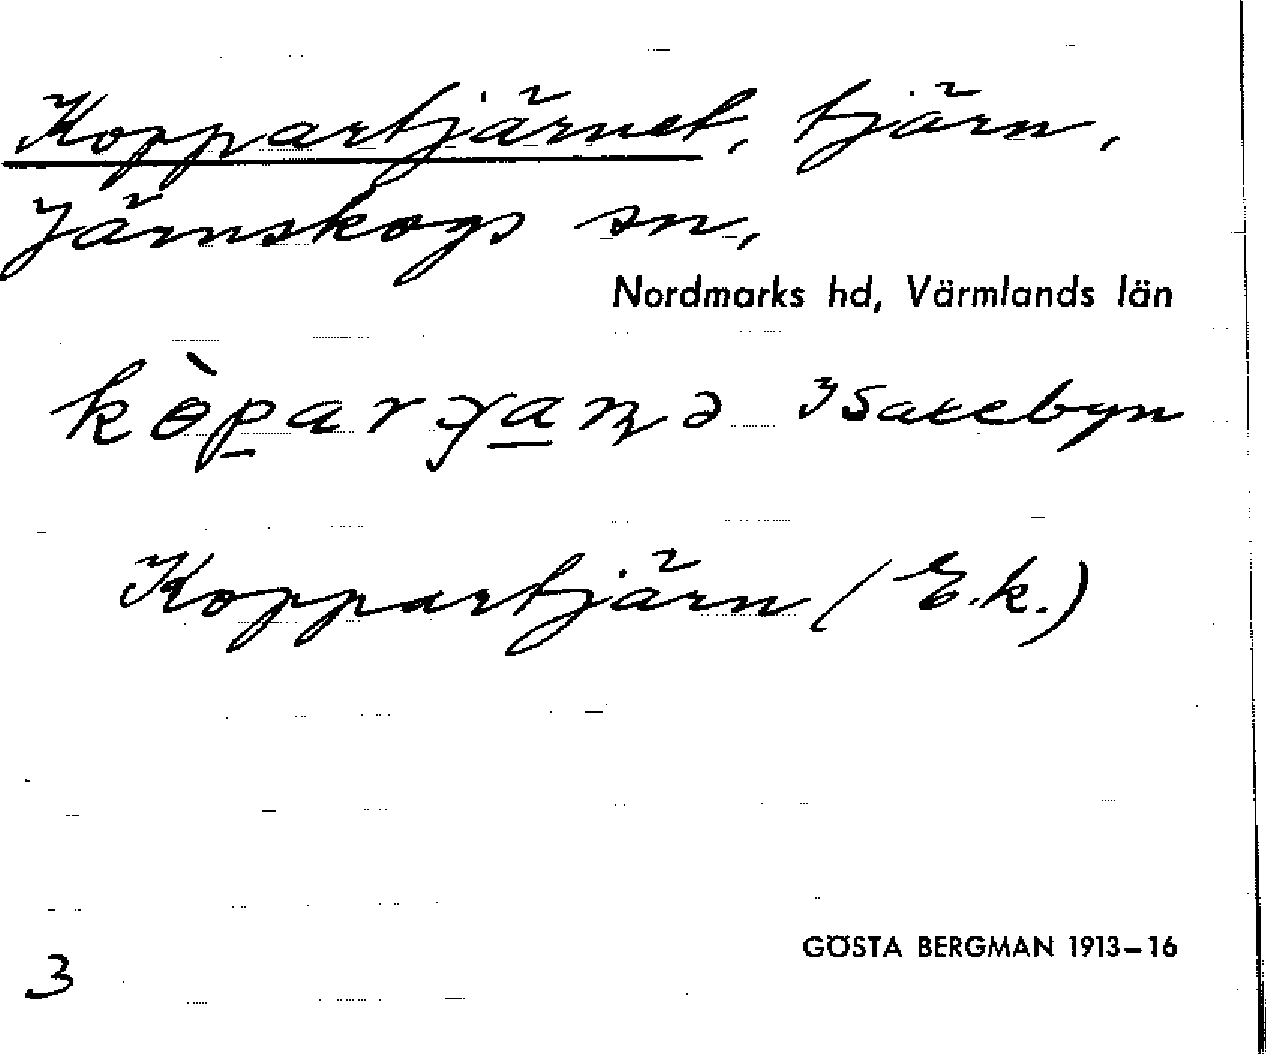 Koppartjärnet, tjärn,
Järnskogs sn,
Nordmarks hd, Värmlands län
Isakebyn
Koppartjärn (E.k.)
GÖSTA BERGMAN 1913–16
3